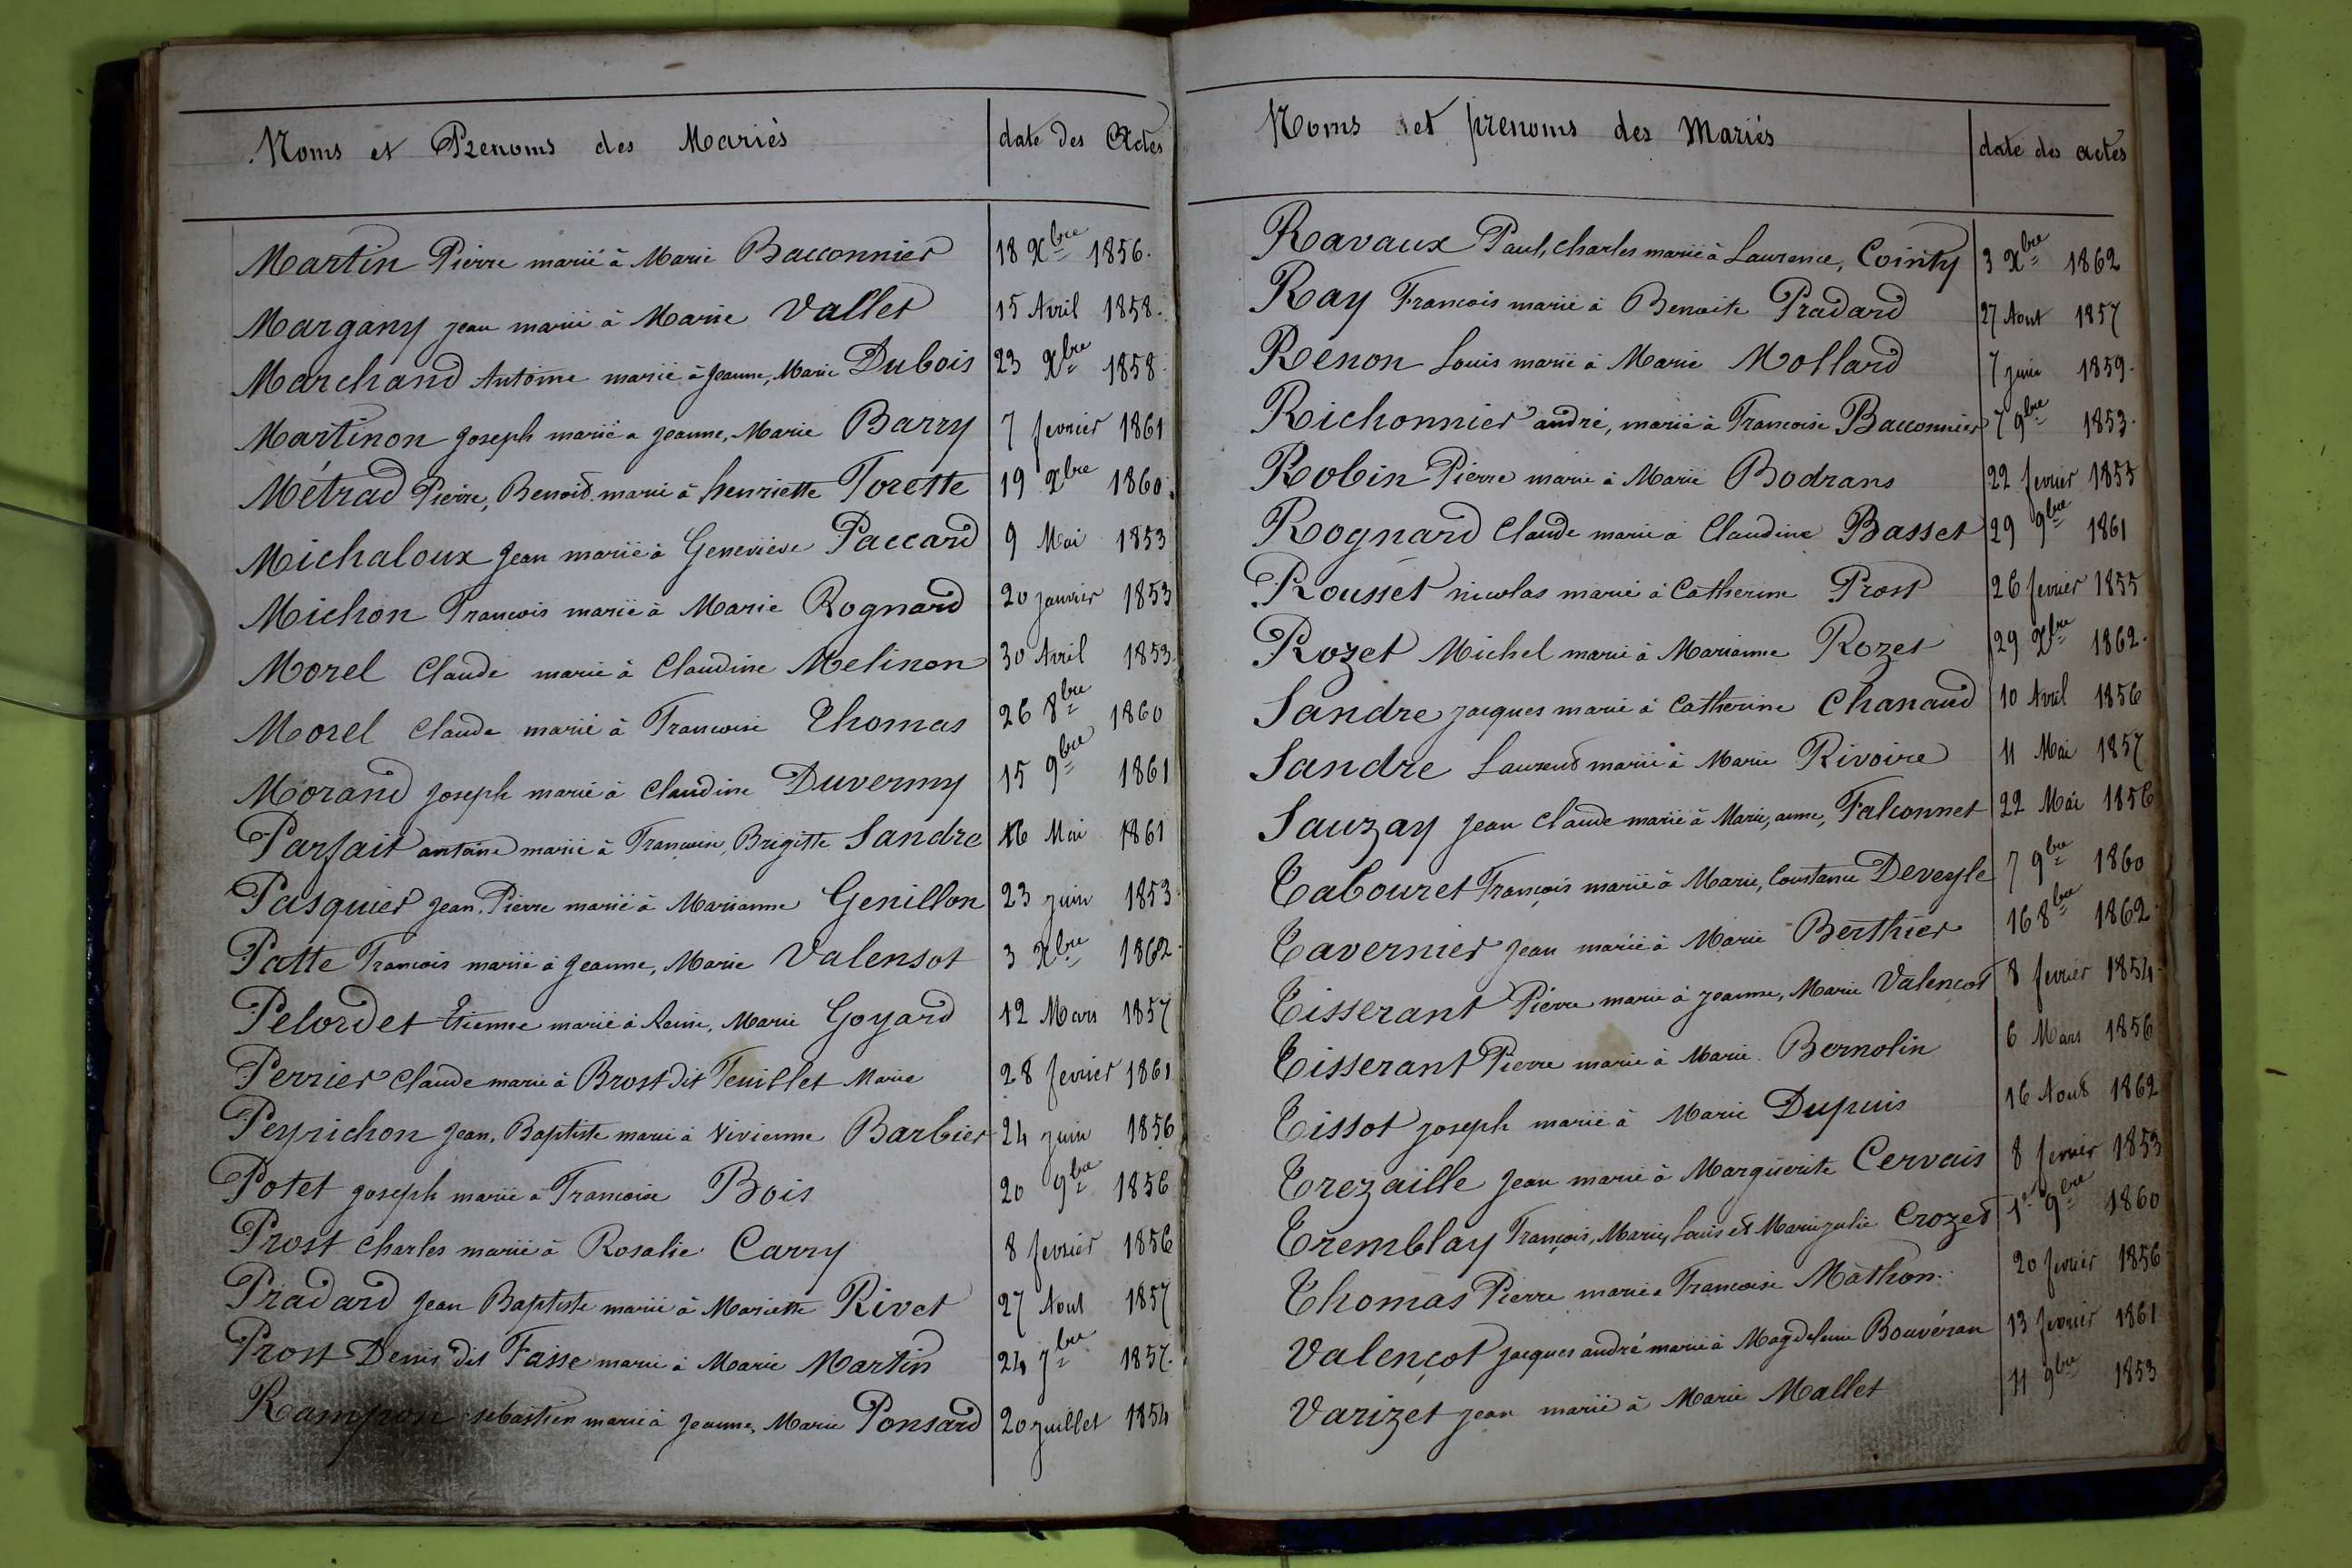 Noms et Prenoms des Mariés date des Actes
Martin Pierre marié à Marie Bacconnier 18 Xbre 1856.
Margany jean marié à Marie Vallet 15 Avril 1858.
Marchand Antoine marié à Jeanne, Marie Dubois 23 Xbre 1858.
Martinon Joseph marié a jeanne, Marie Barry 7 fevrier 1861
Métrad Pierre, Benoid marié à henriette Torette 19 Xbre 1860.
Michaloux Jean marié à Geneviève Paccard 9 Mai 1853
Michon Francois marié à Marie Rognard 20 janvier 1853
Morel Claude marié à Claudine Melinon 30 Avril 1853.
Morel Claude marié à Francoise Thomas 26 8bre 1860
Morand Joseph marié à Claudine Duvermy 15 9bre 1861
Parfait antoine marié à Francoise, Brigitte Sandre 16 Mai 1861
Pasquier Jean, Pierre marié à Marianne Genillon 23 juin 1853.
Patte Francois marié à Jeanne, Marie Valensot 3 Xbre 1862.
Pelordet Etienne marié à Reine, Marie Goyard 12 Mars 1857
Perrier Claude marié à Brost dit Feuillet Marie 28 fevrier 1861
Peyrichon Jean, Baptiste marié à Vivienne Barbier 24 juin 1856
Potet Joseph marié à Francoise Bois 20 9bre 1856
Prost Charles marié à Rosalie Carry 8 fevrier 1856
Pradard Jean Baptiste marié à Mariette Rivet 27 Aout 1857
Prost Denis dit Faisse marié à Marie Martin 24 7bre 1857.
Rampon sebastien marié à Jeanne, Marie Ponsard 20 juillet 1854
Noms et prenoms des Mariés date des actes
Ravaux Paul, Charles marié à Laurence, Cointy 3 Xbre 1862
Ray Francois marié à Benoite Pradard 27 Aout 1857
Renon Louis marié à Marie Mollard 7 juin 1859.
Richonnier andré, marié à Francoise Bacconnier 7 9bre 1853.
Robin Pierre marié à Marie Bodrans 22 fevrier 1855
Rognard Claude marié à Claudine Basset 29 9bre 1861
Rousset nicolas marié à Catherine Prost 26 fevrier 1855
Rozet Michel marié à Marianne Rozet 29 Xbre 1862.
Sandre jacques marié à Catherine Chanaud 10 Avril 1856
Sandre Laurend marié à Marie Rivoire 11 Mai 1857
Sauzay Jean Claude marié à Marie, anne, Falconnet 22 Mai 1856
Tabouret François marié à Marie, Constance Deveyle 7 9bre 1860
Tavernier Jean marié à Marie Berthier 16 8bre 1862.
Tisserant Pierre marié à jeanne, Marie Valencot 8 fevrier 1854.
Tisserant Pierre marié à Marie Bernolin 6 Mars 1856
Tissot joseph marié à Marie Dupuis 16 Aout 1862
Trezaille Jean marié à Marguerite Cervais 8 fevrier 1853
Tremblay François, Marie, Louis et Marie julie Crozet 1er 9bre 1860
Thomas Pierre marié a Francoise Mathon. 20 fevrier 1856
Valençot jacques andré marié à Magdeleine Bouvéran 13 fevrier 1861
Varizet jean marié à Marie Mallet 11 9bre 1853